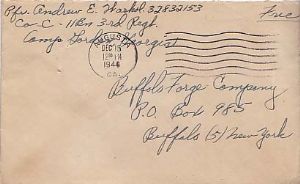 Pfv. Andrew E. 32832153
Co-C-11Bn 3rd Regt.
Free
Camp Gordon Georgia
AUGUSTA
DEC 15
12 PM
1944
GA.
Buffalo Forge Company
P.O. Box 985
Buffalo (5) New York